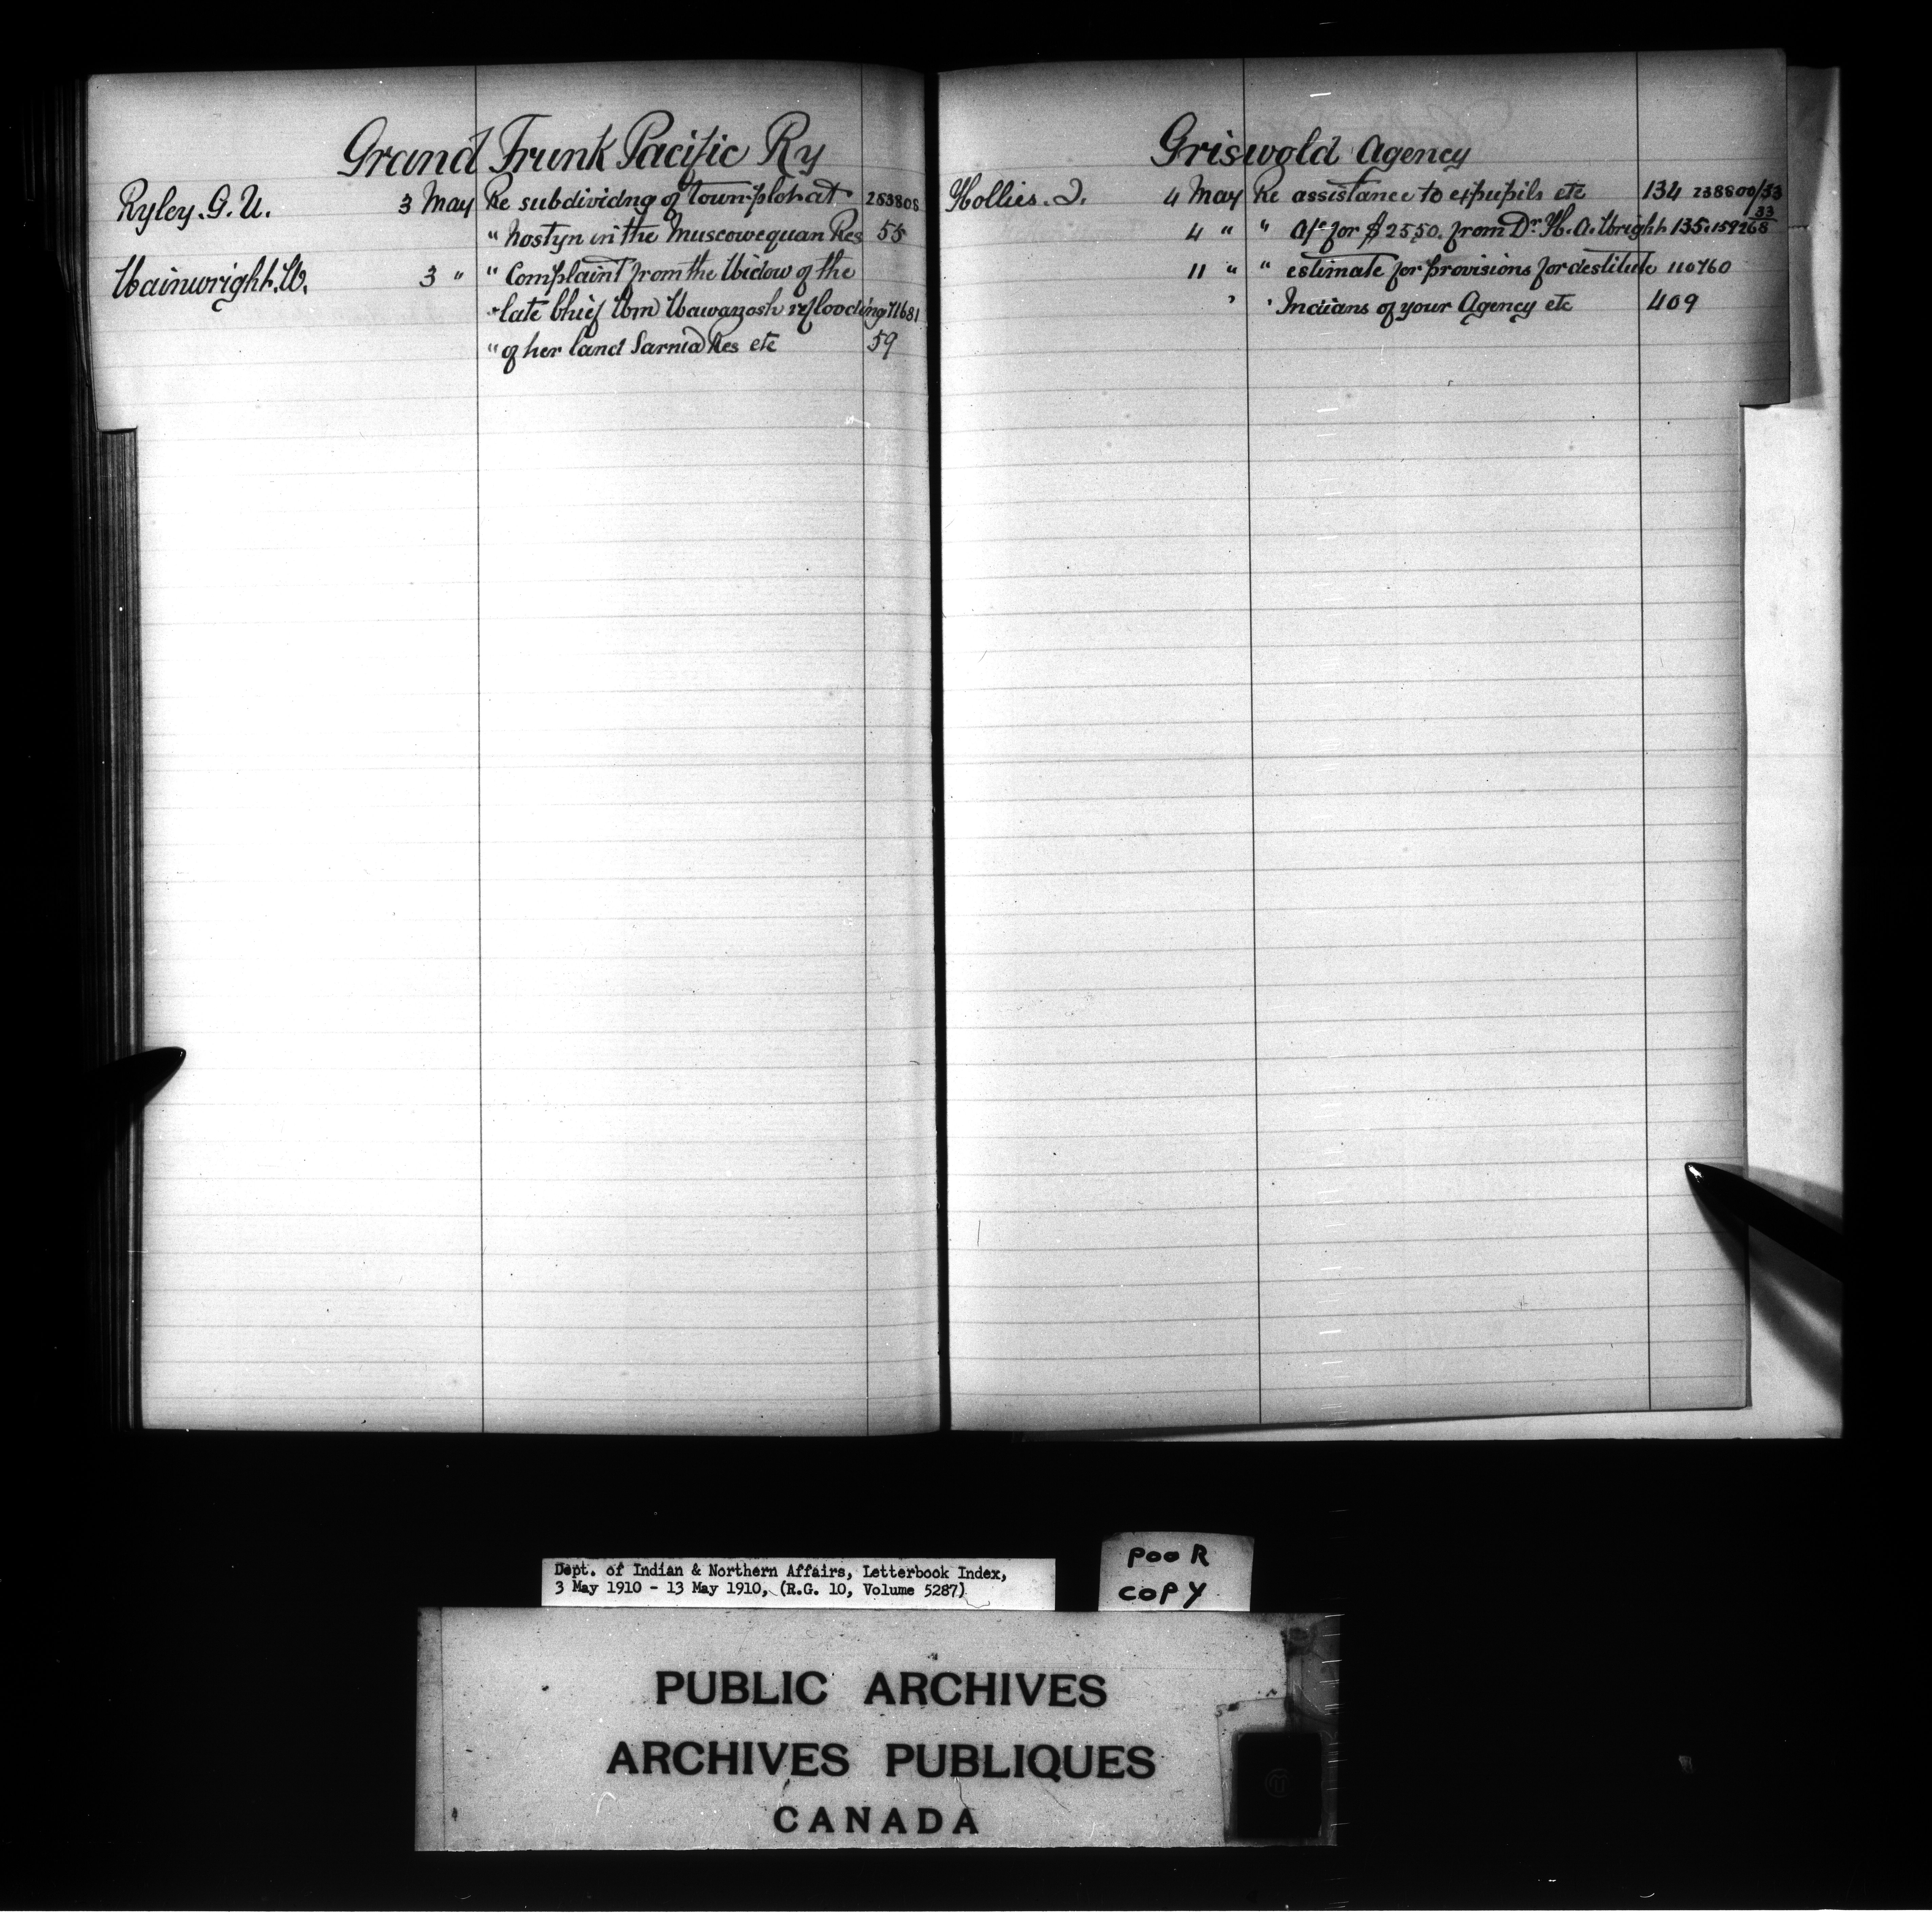 Grand Trunk Pacific Ry
Ryley. G. U. 3 May Re subdividng of townplot at 283808
" Nostyn in the Muscowequan Res 55
Wainwright. W. 3 " " Complaint from the Widow of the
" late Chief Wm Wawanosh re flooding 71681
" of her land Sarnia Res etc 59
Griswold Agency
Hollies. J. 4 May Re assistance to ex pupils etc 134 238800/33
4 " " a/c for $25.50. from Dr. H. A. Wright 135. 159268 33
11 " " estimate for provisions for destitute 110760
" " Indians of your Agency etc 409
Dept. of Indian & Northern Affairs, Letterbook Index,
3 May 1910 - 13 May 1910, (R.G. 10, Volume 5287)
POOR
COPY
PUBLIC ARCHIVES
ARCHIVES PUBLIQUES
CANADA